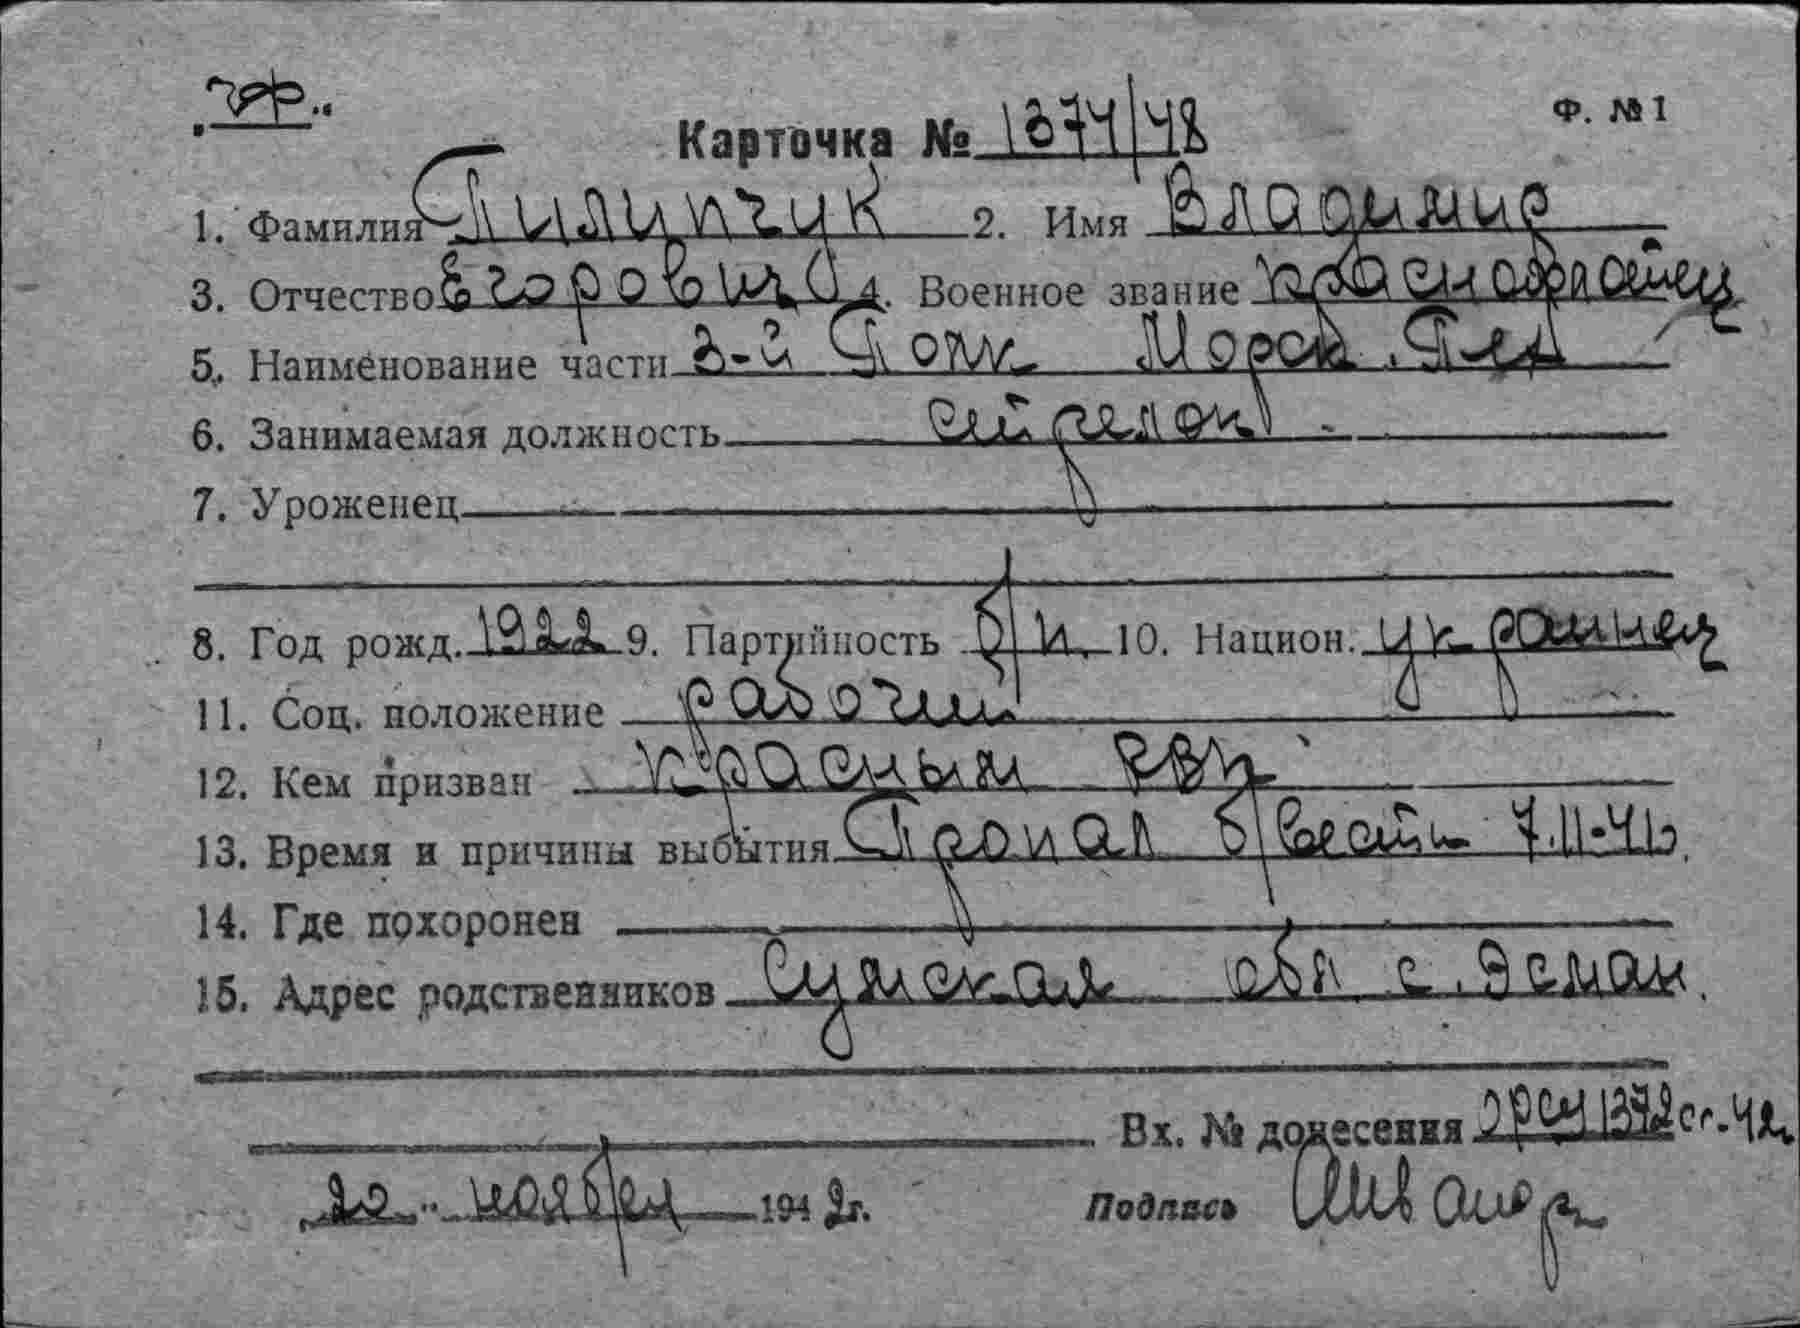 Ф. № 1
Карточка № 1374/48
1. Фамилия Пилипчук 2. Имя Владимир
3. Отчество Егорович 4. Военное звание краснофлотец
5. Наименование части 3-й Полк Морск. Пех
6. Занимаемая должность стрелок
7. Уроженец
8. Год рожд. 1922 9. Партийность б/п. 10. Национ. украинец
11. Соц. положение рабочий
12. Кем призван Красным РВК
13. Время и причины выбытия Пропал б/вести 7.11-41г.
14. Где похоронен
15. Адрес родственников Сумская обл с. Эсман.
Вх. № донесения 1372сс-42г
20 ноября 1942г. Подпись